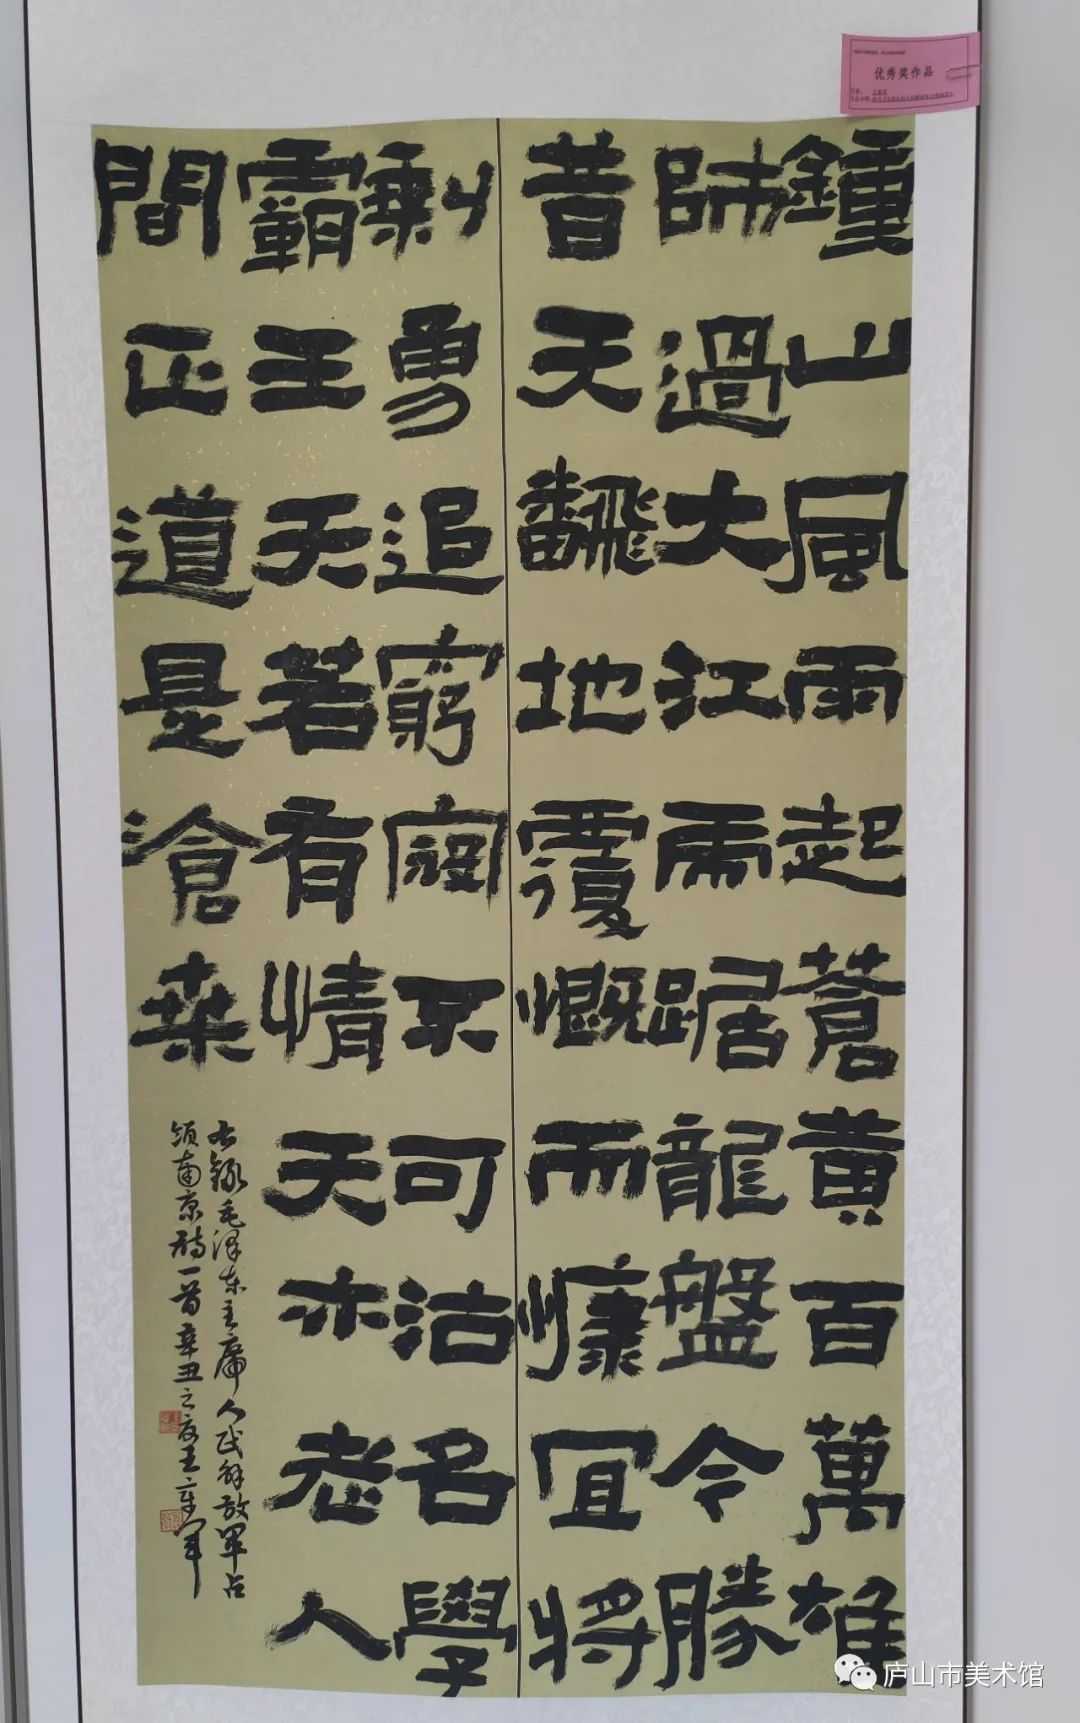 优秀奖作品
鍾山風雨起蒼黄百萬雄
師過大江虎踞龍盤今勝
昔天飜地覆慨而慷宜將
剩勇追窮寇不可沽名學
霸王天若有情天亦老人
間正道是滄桑
右錄毛泽东主席人民解放軍占
领南京詩一首辛丑之夏王章军
庐山市美术馆